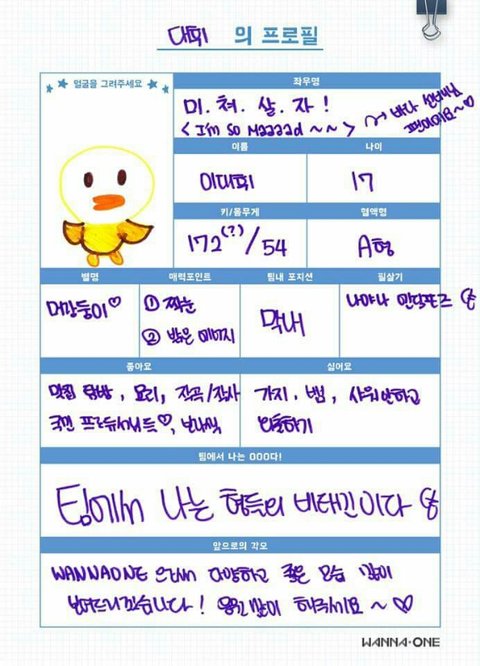 대휘 의 프로필
얼굴을 그려주세요
좌우명
미.쳐.살.자!
< I'm so Maaaad ~~ >
이름
나이
이대휘
17
키/몸무게
혈액형
172(?)/54
A형
별명
매력포인트
팀내 포지션
필살기
① 짝눈
② 밝은 에너지
막내
나야나 엔딩포즈
좋아요
싫어요
맛집 탐방, 요리, 작곡/작사
국민 프로듀서님들♡,
가지, 뱀, 샤워안하고
팀에서 나는 OOO다!
팀에서 나는 형들의 비타민이다
앞으로의 각오
WANNAONE 으로서 다양하고 좋은 모습 많이
보여드리겠습니다! 응원 많이 해주세요~♡
WANNA·ONE